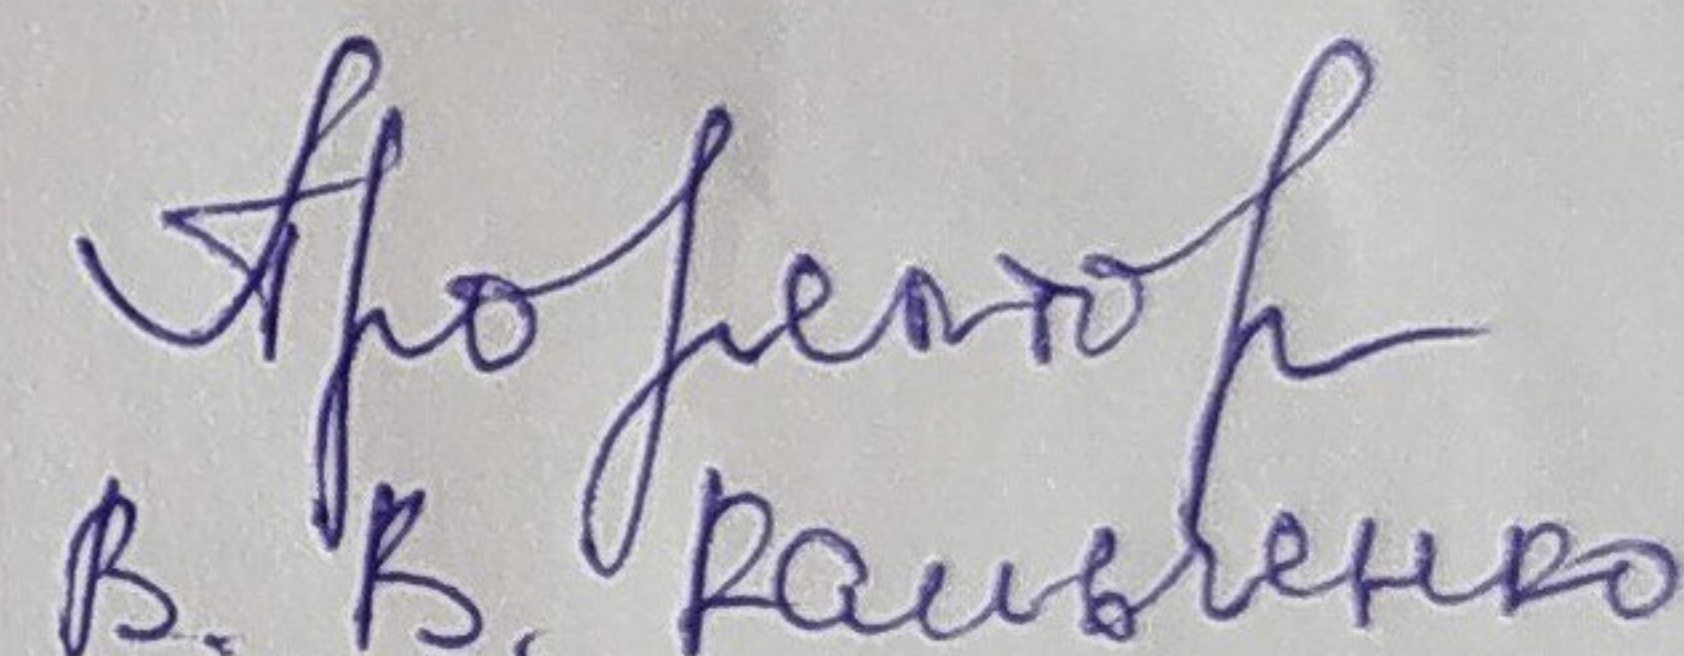 Проректор
В. В. Кальченко